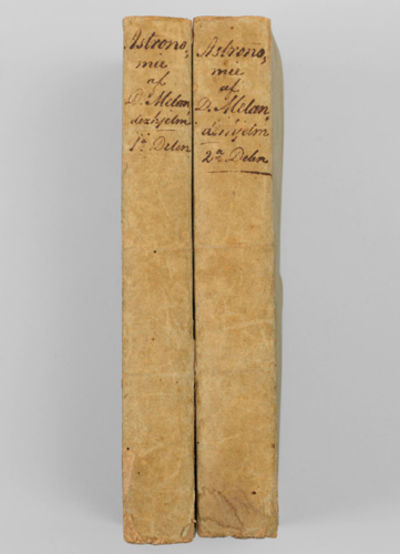 Astrono,
mie
af
D. Melan,
derhjelm
1ª Delen
Astrono,
mie
af
D. Melan,
derhjelm
2ª Delen